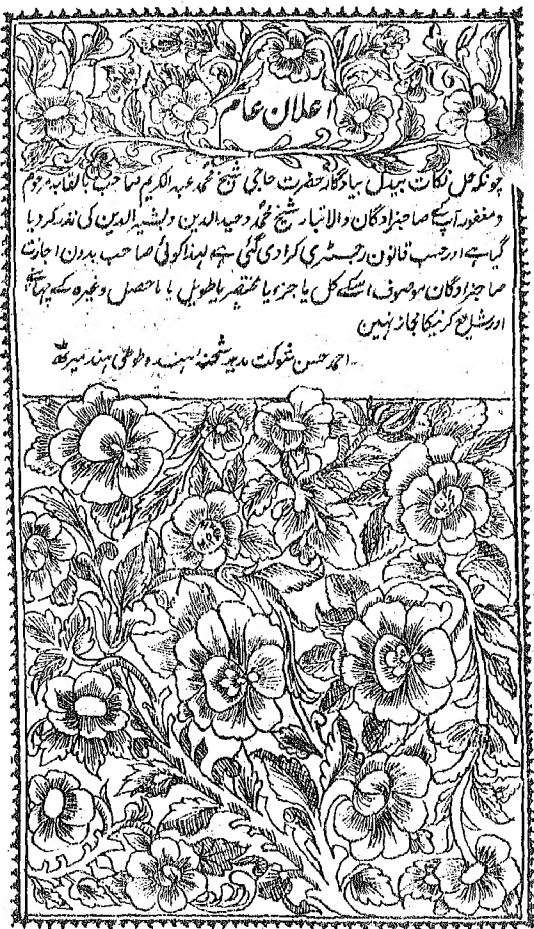 اعلان عام
چونکہ حل نکات بیدل بیادگار حضرت حاجی شیخ محمد عبدالکریم صاحب بالقابہ مرحوم
و مغفور آپ کے صاحبزادگان والاتبار شیخ محمد وحیدالدین و بشیرالدین کی نذر کر دیا
گیا ہے اور حسب قانون رجسٹری کرا دی گئی ہے لہذا کوئی صاحب بدون اجازت
صاحبزادگان موصوف اسکے کل یا جزو یا مختصر یا طویل یا ماحصل وغیرہ کے چہاپنے
اور شایع کرنیکا مجاز نہین
احمد حسن شوکت مدیر شحنۂ ہند و طوطی ہند میرٹھ